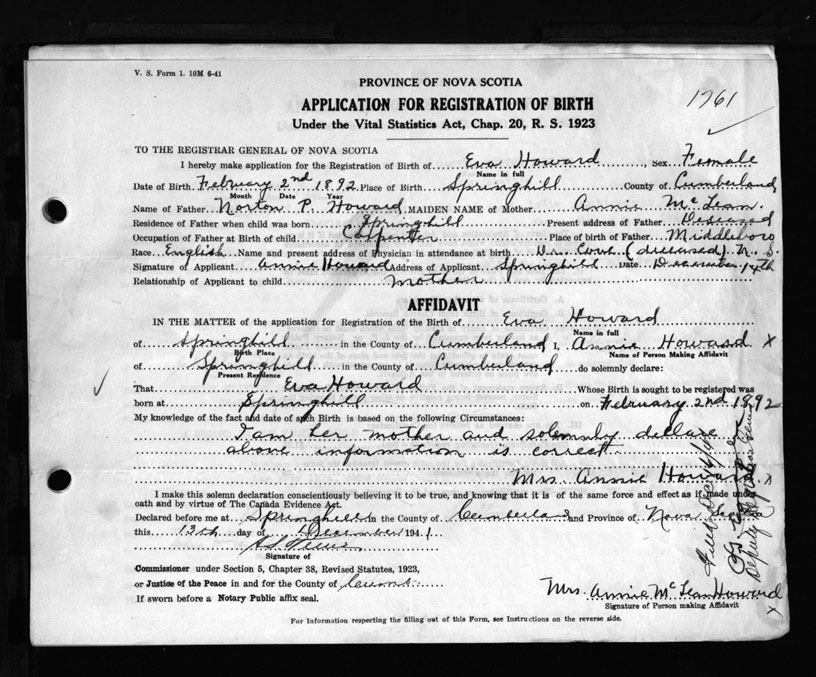 V. S. Form 1. 10M 6-41
PROVINCE OF NOVA SCOTIA
1761
APPLICATION FOR REGISTRATION OF BIRTH
Under the Vital Statistics Act, Chap. 20, R. S. 1923
TO THE REGISTRAR GENERAL OF NOVA SCOTIA
I hereby make application for the Registration of Birth of Eva Howard, sex Female
Name in full
Date of Birth February 2nd 1892 Place of Birth Springhill County of Cumberland
Month Date Year
Name of Father Norton P. Howard MAIDEN NAME of Mother Annie McLean
Residence of Father when child was born Springhill Present address of Father Deseased
Occupation of Father at Birth of child Carpenter Place of birth of Father Middleboro
Race English Name and present address of Physician in attendance at birth Dr. (deceased) N.S.
Signature of Applicant Annie Howard Address of Applicant Springhill Date December 14th
Relationship of Applicant to child mother
AFFIDAVIT
IN THE MATTER of the application for Registration of the Birth of Eva Howard
Name in full
of Springhill in the County of Cumberland I, Annie Howard x
Birth Place Name of Person Making Affidavit
of Springhill in the County of Cumberland do solemnly declare:
Present Residence
That Eva Howard Whose Birth is sought to be registered was
born at Springhill on February 2nd 1892
My knowledge of the fact and date of such Birth is based on the following Circumstances:
I am her mother and solemnly declare
above information is correct
Mrs. Annie Howard x
I make this solemn declaration conscientiously believing it to be true, and knowing that it is of the same force and effect as if made under
oath and by virtue of The Canada Evidence Act.
Declared before me at Springhill in the County of Cumberland and Province of Nova Scotia
this 13th day of December 1941
Signature of
Commissioner under Section 5, Chapter 38, Revised Statutes, 1923,
or Justice of the Peace in and for the County of
If sworn before a Notary Public affix seal.
Mrs. Annie McLean Howard
Signature of Person making Affidavit x
For Information respecting the filling out of this Form, see Instructions on the reverse side.
Deputy